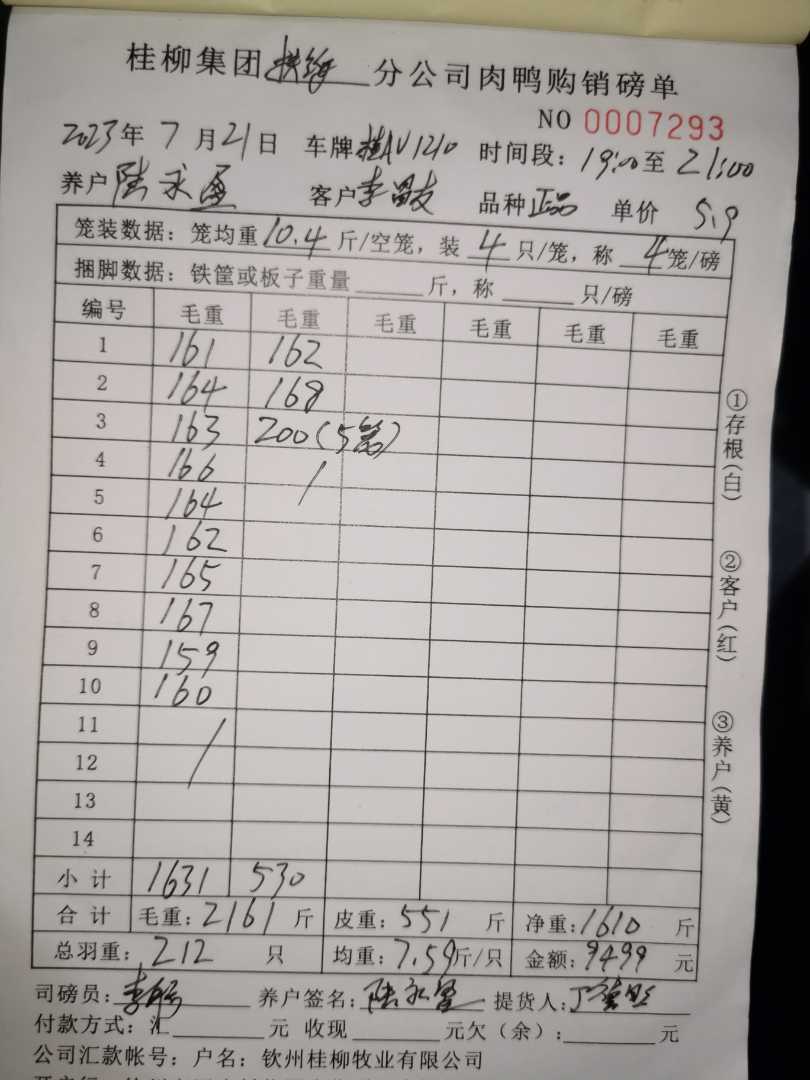 桂柳集团扶绥分公司肉鸭购销磅单
NO 0007293
2023年7月21日 车牌桂AV1210 时间段：19:00至21:00
养户陆永盈 客户李 品种正品 单价 5.9
笼装数据：笼均重10.4斤/空笼，装4只/笼，称4笼/磅
捆脚数据：铁筐或板子重量______斤，称______只/磅
编号 毛重 毛重 毛重 毛重 毛重 毛重
1 161 162
2 164 168
3 163 200(5笼)
4 166 /
5 164
6 162
7 165
8 167
9 159
10 160
11 /
12
13
14
小计 1631 530
合计 毛重：2161斤 皮重：551斤 净重：1610斤
总羽重：212只 均重：7.59斤/只 金额：9499元
司磅员：李 养户签名：陆永盈 提货人：
付款方式：汇______元 收现______元欠（余）：______元
公司汇款帐号：户名：钦州桂柳牧业有限公司
①存根(白)
②客户(红)
③养户(黄)